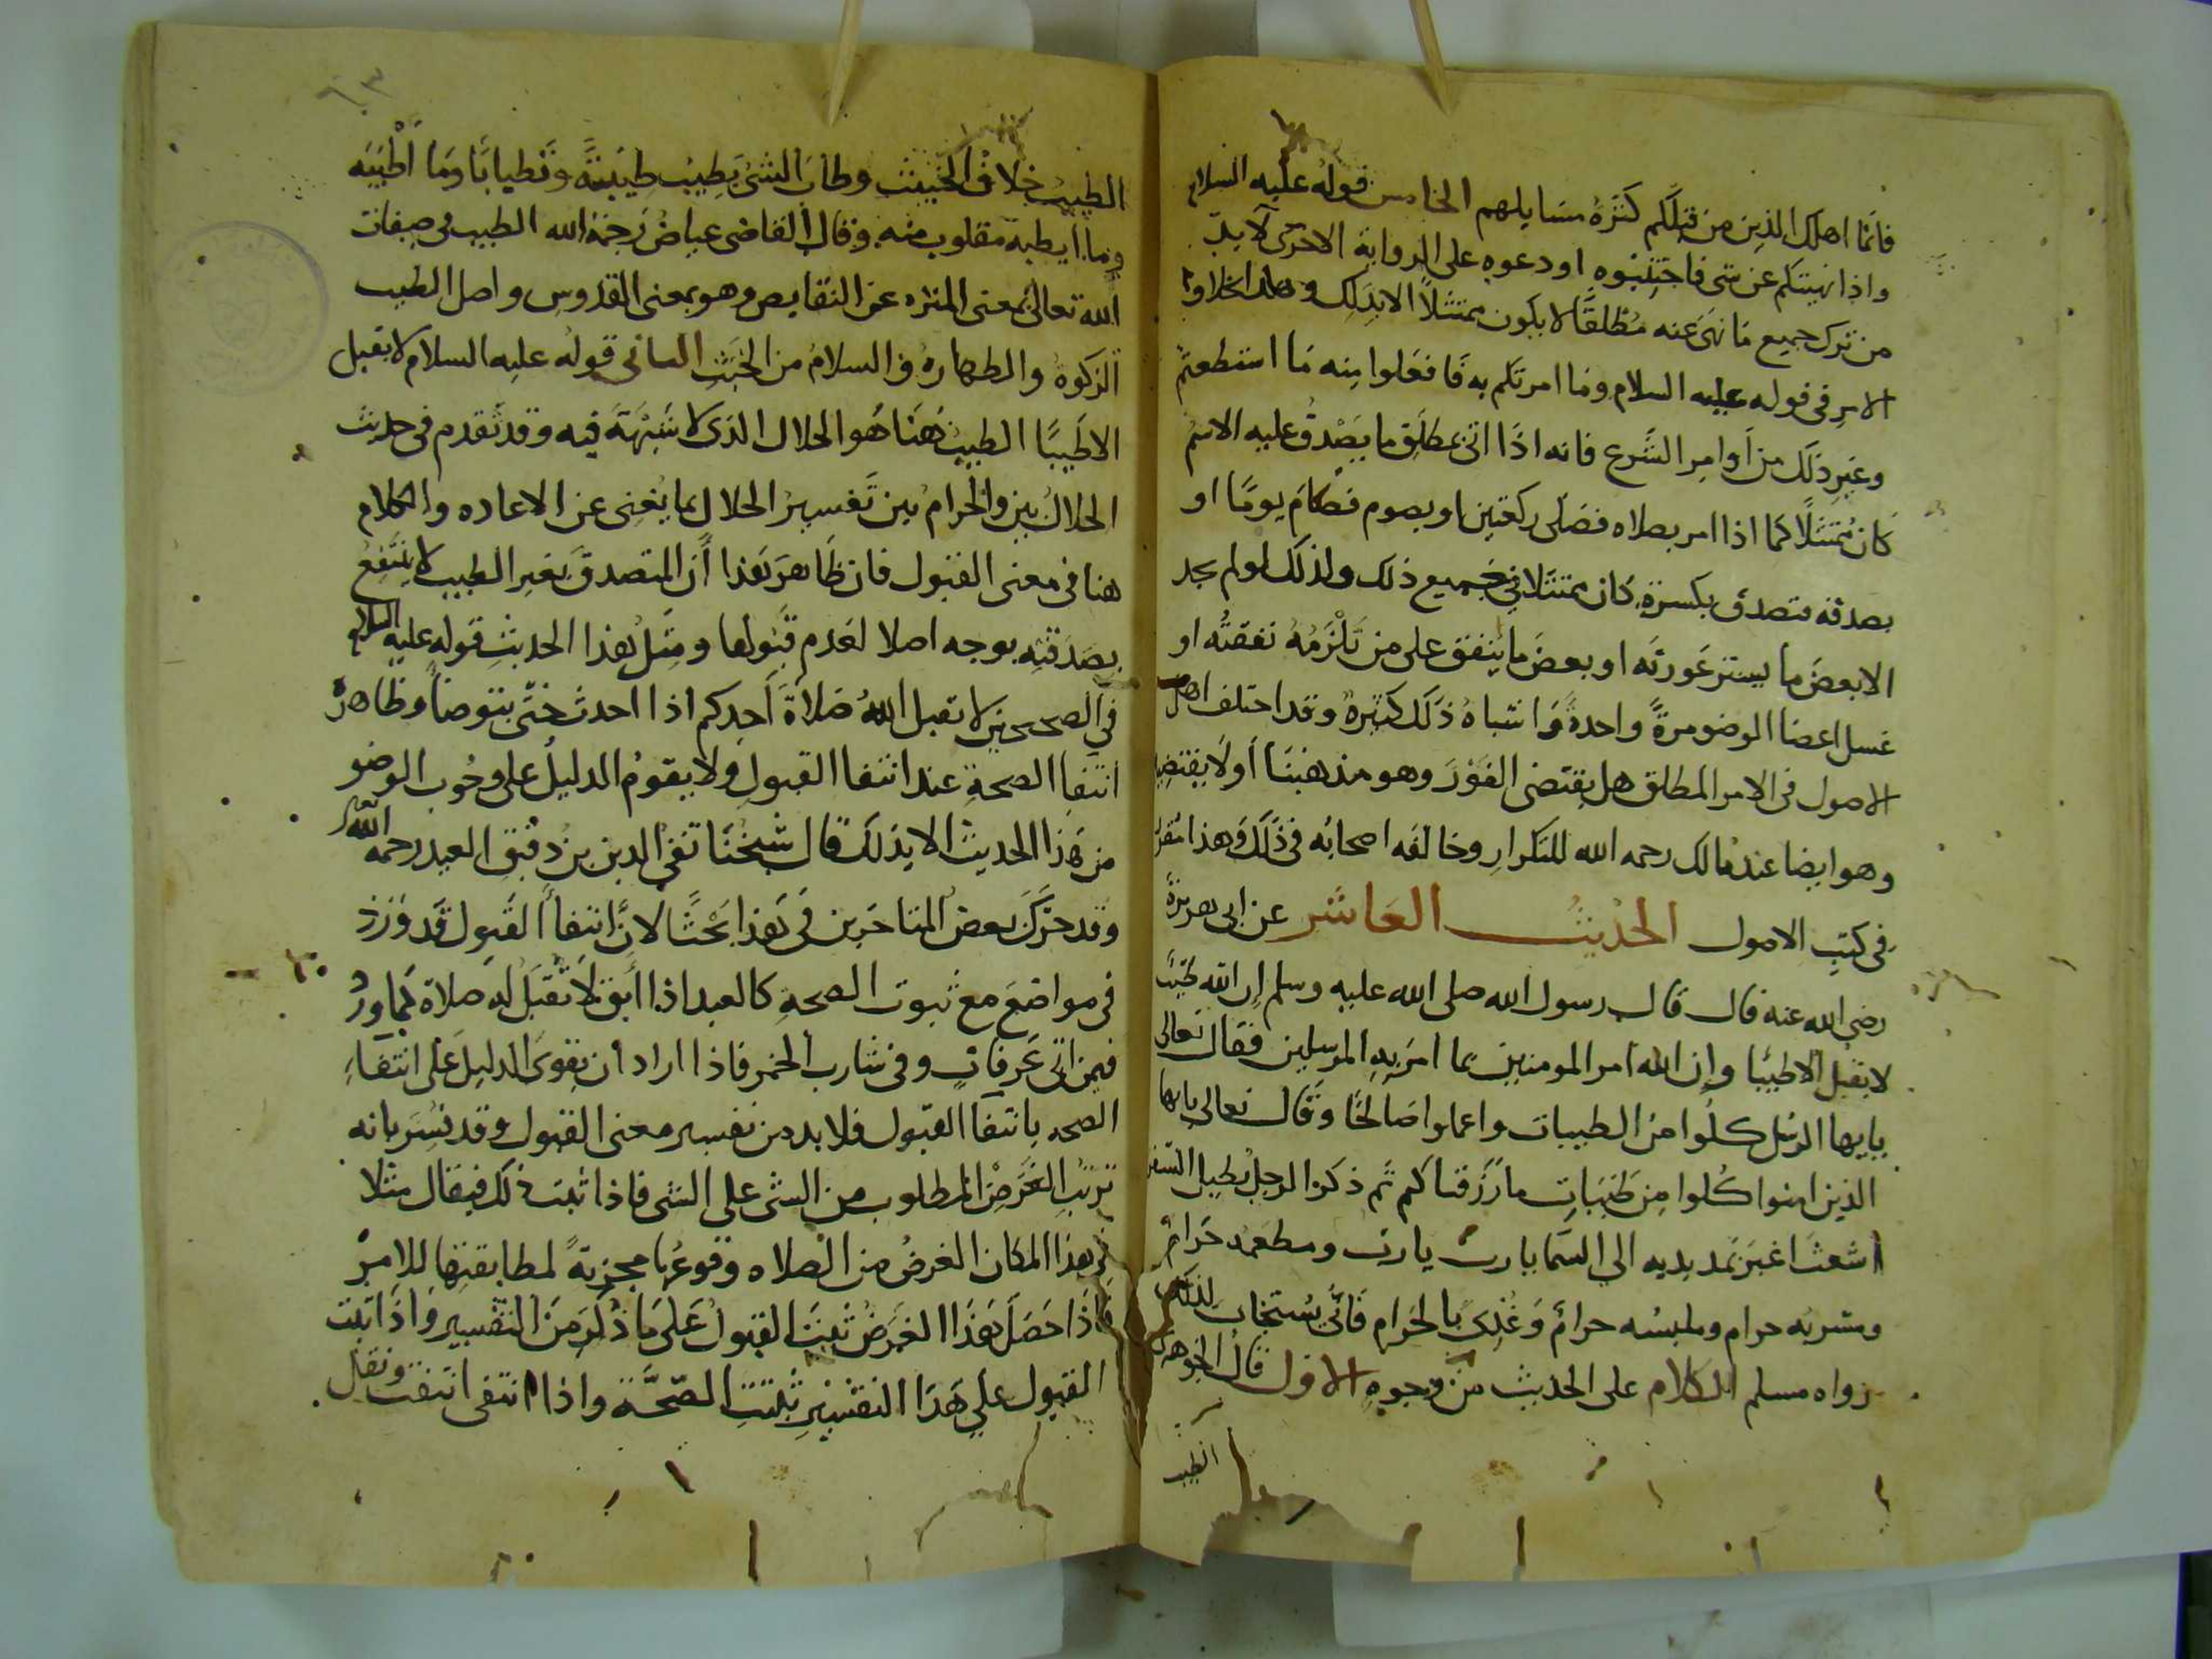 فانما اهلك الذين من قبلكم كثرة مسايلهم الخامس قوله عليه السلام
واذا نهيتكم عن شي فاجتنبوه او دعوه على الرواية الاخرى لا بد
من ترك جميع ما نهى عنه مطلقا لا يكون ممتثلا الا بذلك وهذا بخلاف
الامر في قوله عليه السلام وما امرتكم به فافعلوا منه ما استطعتم
وغير ذلك من اوامر الشرع فانه اذا اتى بمطلق ما يصدق عليه الاسم
كان ممتثلا كما اذا امر بصلاه فصلى ركعتين او بصوم فصام يوما او
بصدقه فتصدق بكسرة كان ممتثلا في جميع ذلك ولذلك لو لم يجد
الا بعض ما يستر عورته او بعض ما ينفق على من تلزمه نفقته او
غسل اعضا الوضو مرة واحدة واشباه ذلك كثيرة وقد اختلف اهل
الاصول في الامر المطلق هل يقتضي الفور وهو مذهبنا او لا يقتضيه
وهو ايضا عند مالك رحمه الله للتكرار وخالفه اصحابه في ذلك وهذا مقرر
في كتب الاصول الحديث العاشر عن ابي هريرة
رضي الله عنه قال قال رسول الله صلى الله عليه وسلم إن الله طيب
لا يقبل الا طيبا وإن الله امر المومنين بما امر به المرسلين فقال تعالى
يايها الرسل كلوا من الطيبات واعملوا صالحا وقال تعالى يايها
الذين امنوا كلوا من طيبات ما رزقناكم ثم ذكر الرجل يطيل السفر
اشعث اغبر يمد يديه الي السما يا رب يا رب ومطعمه حرام
ومشربه حرام وملبسه حرام وغذي بالحرام فانى يستجاب لذلك
رواه مسلم الكلام على الحديث من وجوه الاول قال الجوهري
الطيب
٦٣
الطيب خلاف الخبيث وطاب الشئ يطيب طيبة وتطيابا وما أطيبه
وما ايطبه مقلوب منه وقال القاضي عياض رحمة الله الطيب في صفات
الله تعالى بمعنى المنزه عن النقايص وهو بمعنى القدوس واصل الطيب
الزكوة والطهارة والسلام من الخبث الثاني قوله عليه السلام لا يقبل
الا طيبا الطيب هنا هو الحلال الذي لا شبهة فيه وقد تقدم في حديث
الحلال بين والحرام بين تفسير الحلال بما يغني عن الاعاده والكلام
هنا في معنى القبول فان ظاهر هذا أن المتصدق بغير الطيب لا ينتفع
بصدقته بوجه اصلا لعدم قبولها ومثل هذا الحديث قوله عليه السلام
في الصحيحين لا تقبل الله صلاة أحدكم اذا احدث حتى يتوضأ وظاهره
انتفا الصحة عند انتفا القبول ولا يقوم الدليل على وجوب الوضو
من هذا الحديث الا بذلك قال شيخنا تقي الدين بن دقيق العيد رحمه الله
وقد حرك بعض المتاخرين في هذا بحثا لان انتفا القبول قد ورد
في مواضع مع ثبوت الصحة كالعبد اذا أبق لا تقبل له صلاة كما ورد
فيمن اتى عرفات وفي شارب الخمر فاذا اراد ان يقوى الدليل على انتفاء
الصحه بانتفا القبول فلا بد من تفسير معنى القبول وقد فسر بانه
ترتب الغرض المطلوب من الشي على الشي فاذا ثبت ذلك فيقال مثلا
في هذا المكان الغرض من الصلاه وقوعها مجزية لمطابقتها للامر
فاذا حصل هذا الغرض ثبت القبول على ما ذكر من التفسير واذا ثبت
القبول علي هذا التفسير ثبتت الصحة واذا انتفى انتفت ونقل